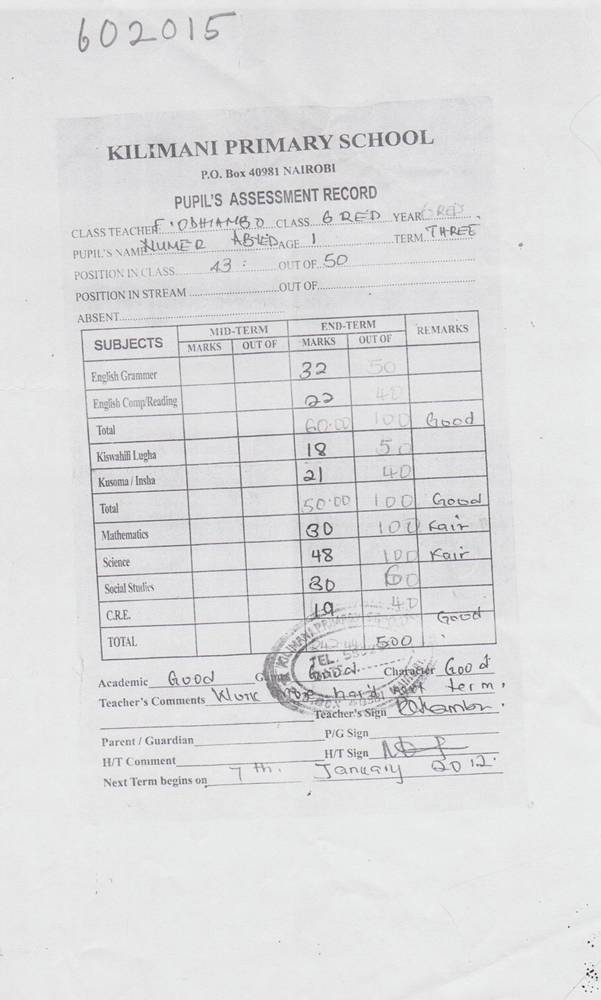 602015
KILIMANI PRIMARY SCHOOL
P.O. Box 40981 NAIROBI
PUPIL'S ASSESSMENT RECORD
CLASS TEACHER F. ODHIAMBO CLASS 6 RED YEAR
PUPIL'S NAME NUMER ABLED AGE 1 TERM THREE
POSITION IN CLASS 43 : OUT OF 50
POSITION IN STREAM OUT OF
ABSENT
SUBJECTS MID-TERM END-TERM REMARKS
MARKS OUT OF MARKS OUT OF
English Grammer 32 50
English Comp/Reading 22 40
Total 60.00 100 Good
Kiswahili Lugha 18 50
Kusoma / Insha 21 40
Total 50.00 100 Good
Mathematics 30 100 Fair
Science 48 100 Fair
Social Studies 30 60
C.R.E. 19 40 Good
TOTAL 500
Academic Good Games Good Character Good
Teacher's Comments Work more hard next term.
Teacher's Sign
Parent / Guardian P/G Sign
H/T Comment H/T Sign
Next Term begins on 7th. January 2012.
KILIMANI
TEL.